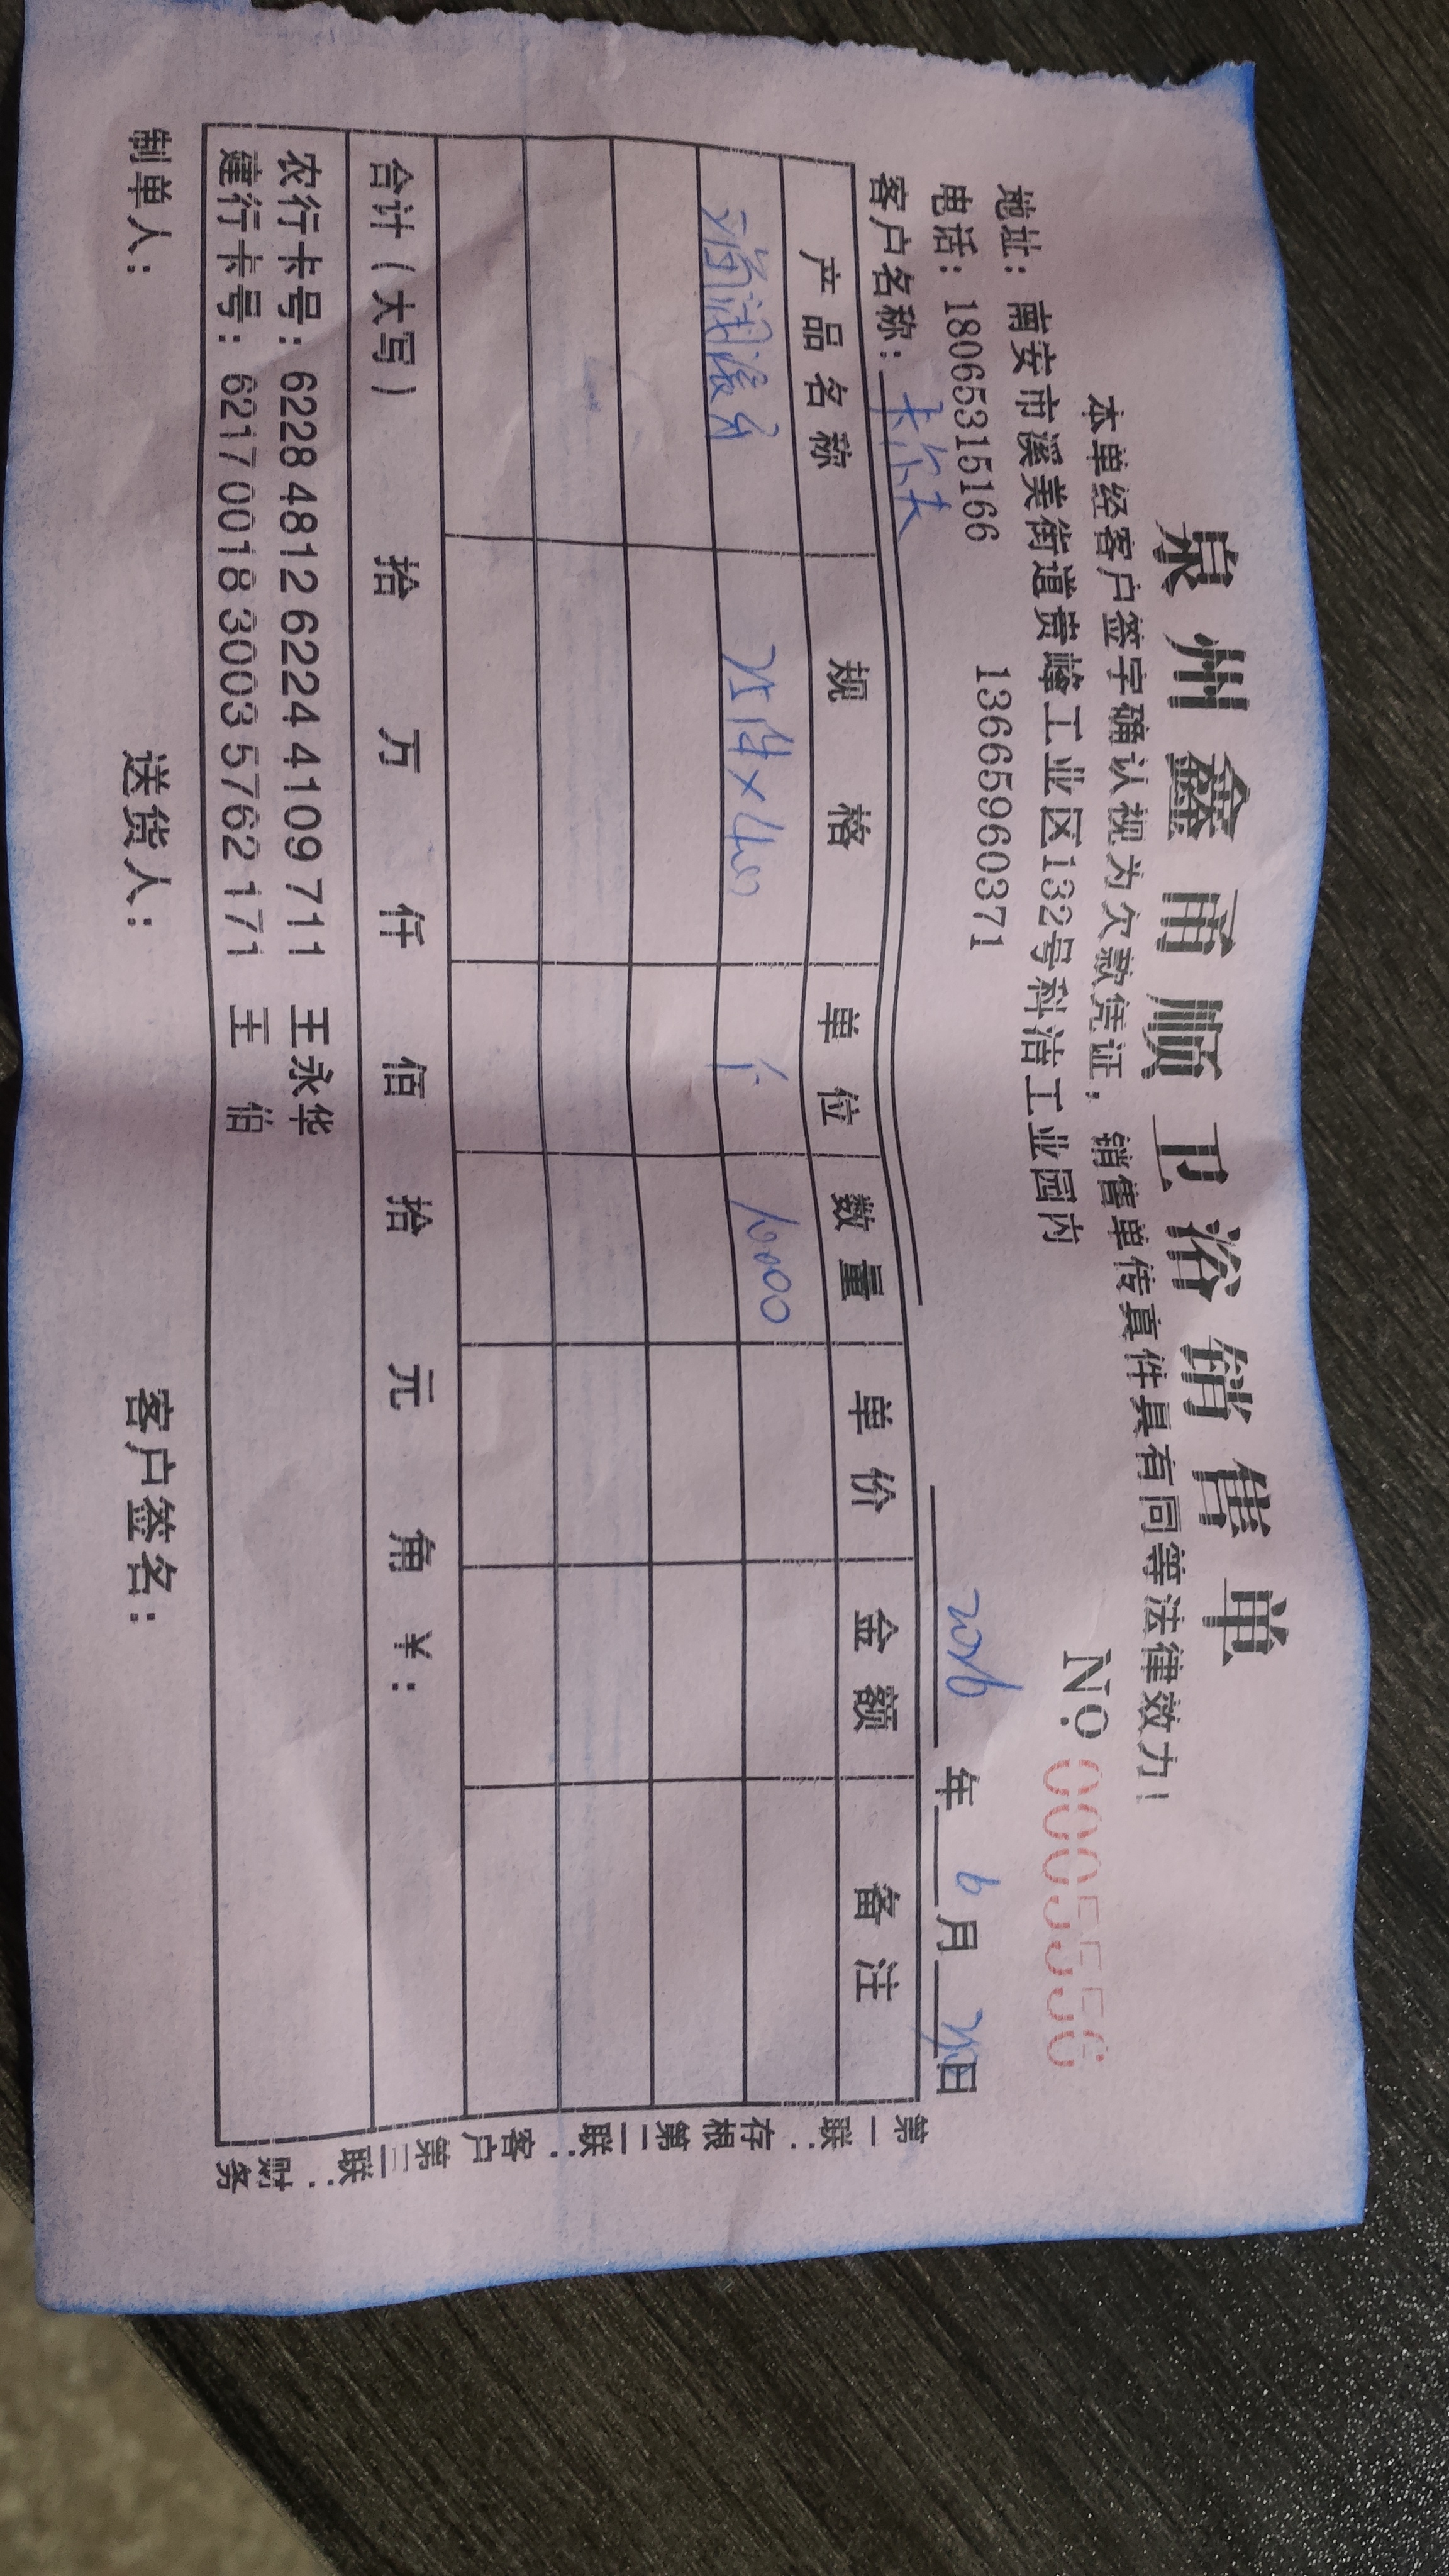 泉州鑫甬顺卫浴销售单
本单经客户签字确认视为欠款凭证，销售单传真件具有同等法律效力！
地址：南安市溪美街道贵峰工业区132号科洁工业园内
No 0005556
电话：18065315166 13665960371
客户名称：卡尔夫 2026年6月20日
产品名称 规格 单位 数量 单价 金额 备注
25件×400 个 10000
合计（大写） 拾 万 仟 佰 拾 元 角 ¥：
农行卡号：6228 4812 6224 4109 711 王永华
建行卡号：6217 0018 3003 5762 171 王伯
制单人： 送货人： 客户签名：
第一联：存根 第二联：客户 第三联：财务